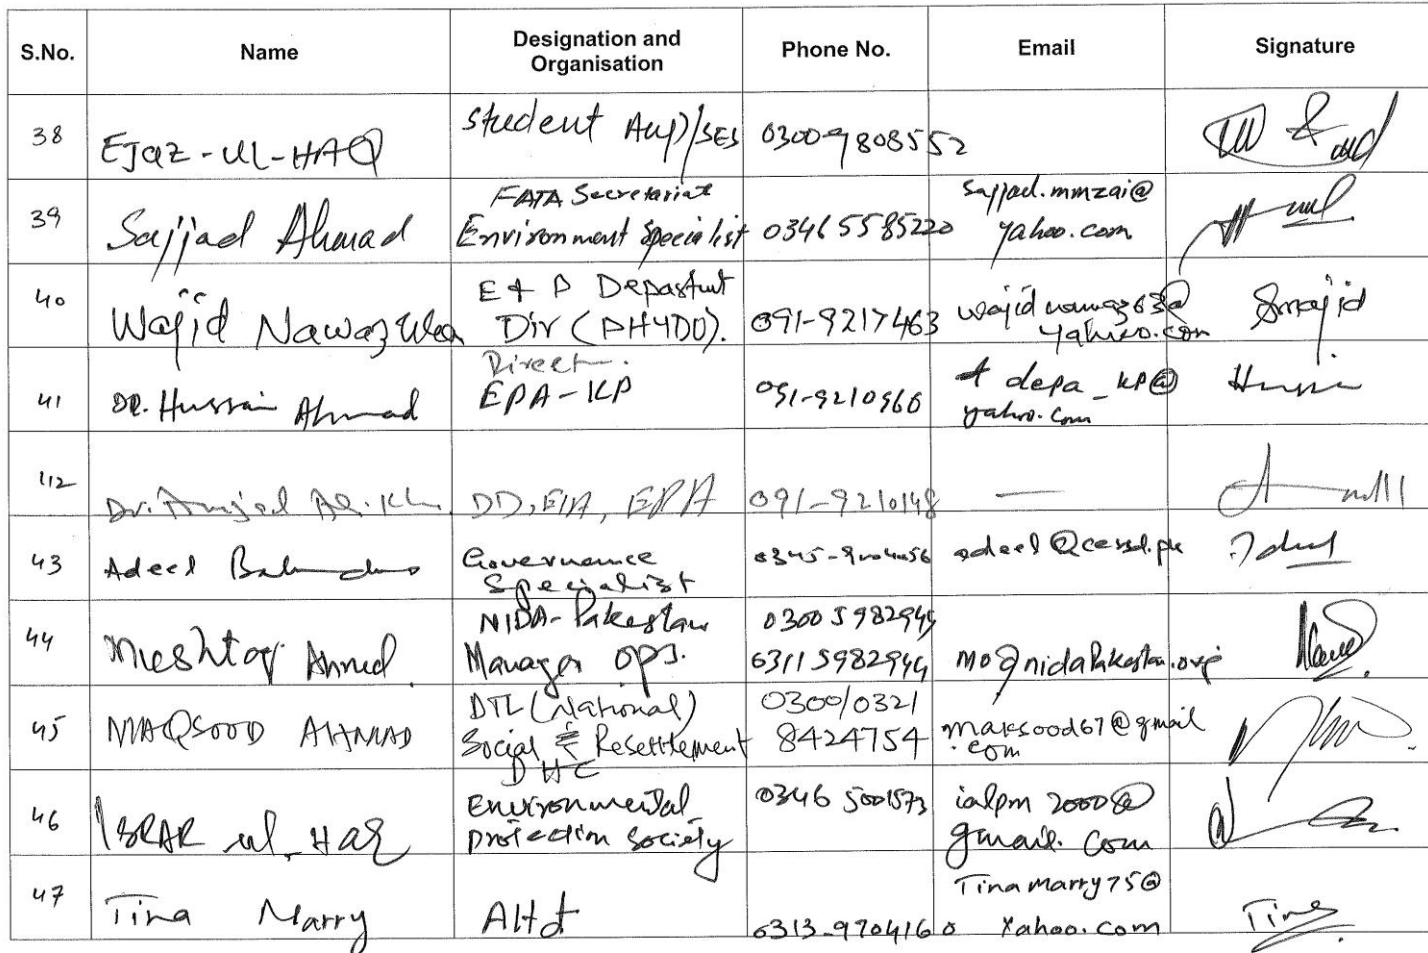 S.No. Name Designation and Organisation Phone No. Email Signature
38 Ejaz-ul-HAQ Student AUP/SES 0300-9808552
39 Sajjad Ahmad FATA Secretariat Environment Specialist 03465585220 sajjad.mmzai@yahoo.com
40 Wajid Nawaz E & P Dir (PHYDO). 091-9217463 yahoo.com
41 DR. Hussain Ahmad Direct EPA-KP 091-9210960 depa_kp@yahoo.com
42 Dr. Amjad Ali Kh. DD, EIA, EPA 091-9210148 —
43 Adeel Governance Specialist adeel@cessd.pk
44 Mushtaq Ahmed NIDA-Pakistan Manager ops. 03005982949 03115982944 mo@nidaPakistan.org
45 MAQSOOD AHMAD DTL (National) Social & Resettlement DHC 0300/0321 8424754 maksood67@gmail.com
46 ISRAR ul-HAQ Environmental Protection Society 0346 5001573 ialpm2000@gmail.com
47 Tina Marry 0313-9704160 Tinamarry75@Yahoo.com Tina